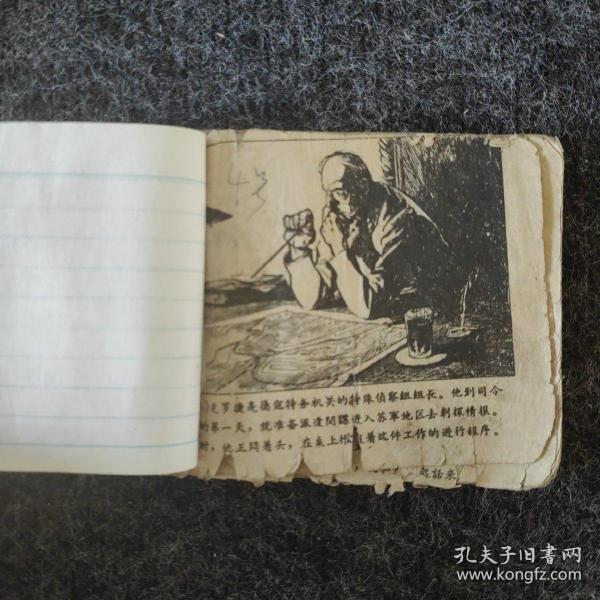 4号
克罗捷是德寇特务机关的特殊侦察组组长。他到司令
的第一天，就准备派遣间諜进入苏軍地区去刺探情报。
时，他正閊着头，在桌上 着这件工作的进行程序。
起話来
孔夫子旧书网
www.kongfz.com